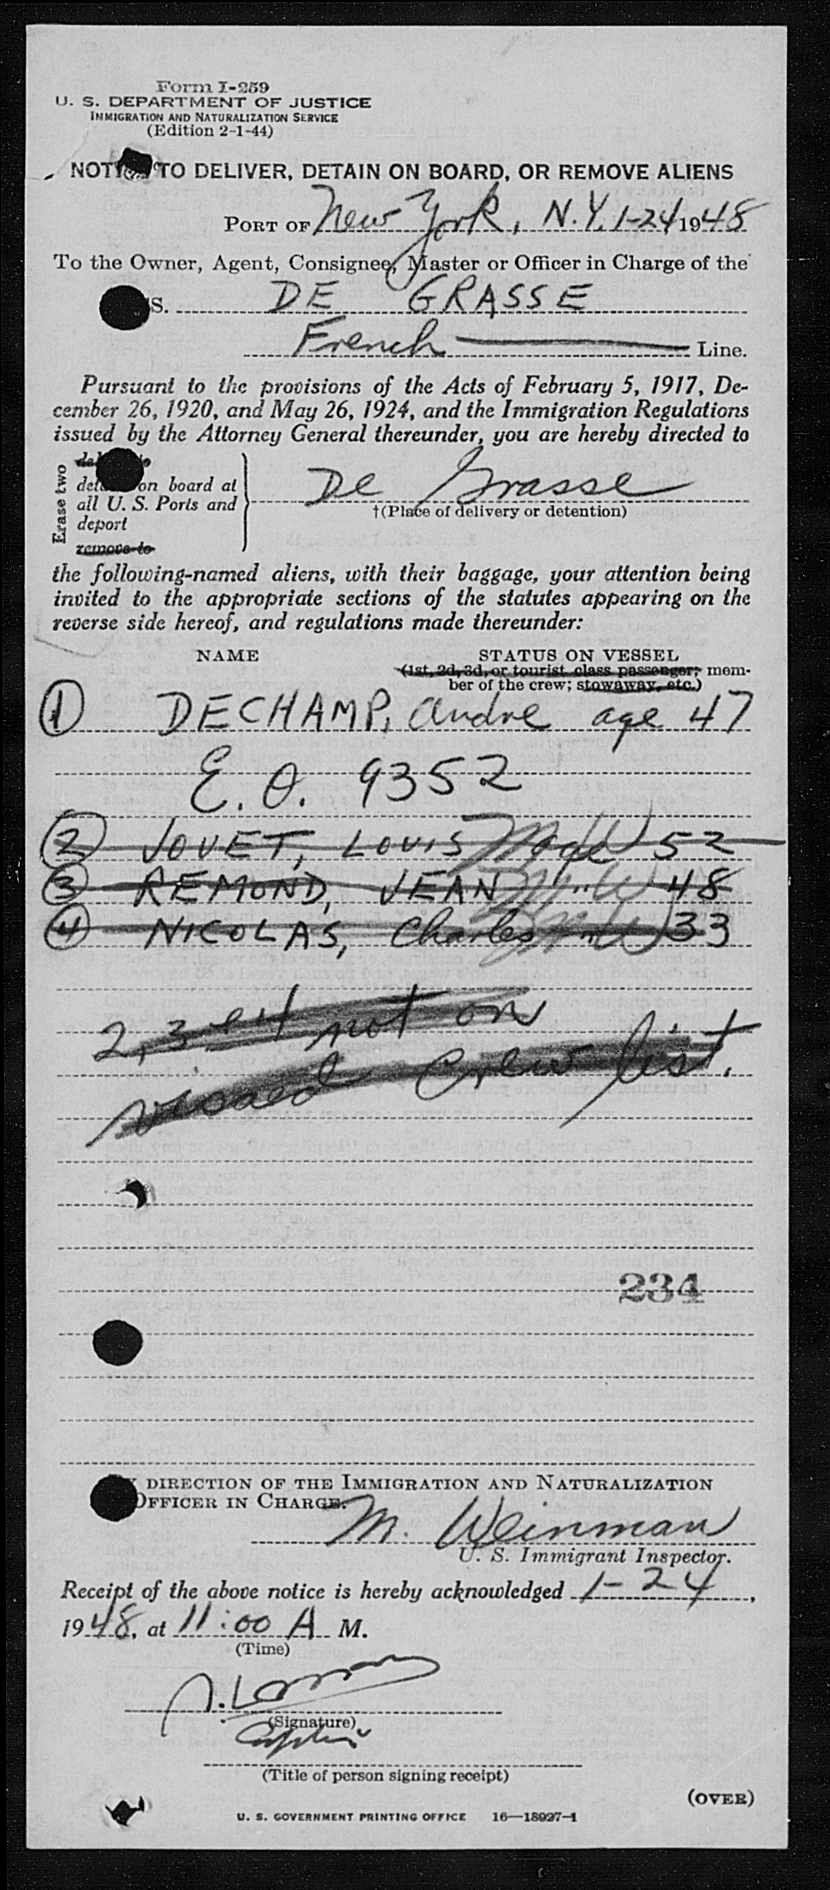 Form I-259
U. S. DEPARTMENT OF JUSTICE
IMMIGRATION AND NATURALIZATION SERVICE
(Edition 2-1-44)
TO DELIVER, DETAIN ON BOARD, OR REMOVE ALIENS
PORT OF New York, N.Y. 1-24 1948
To the Owner, Agent, Consignee, Master or Officer in Charge of the
S. DE GRASSE
French Line.
Pursuant to the provisions of the Acts of February 5, 1917, De-
cember 26, 1920, and May 26, 1924, and the Immigration Regulations
issued by the Attorney General thereunder, you are hereby directed to
Erase two
on board at
all U. S. Ports and
deport
remove to
De Grasse
†(Place of delivery or detention)
the following-named aliens, with their baggage, your attention being
invited to the appropriate sections of the statutes appearing on the
reverse side hereof, and regulations made thereunder:
NAME STATUS ON VESSEL
(1st, 2d, 3d, or tourist class passenger; mem-
ber of the crew; stowaway, etc.)
1 DECHAMP, Andre age 47
E. O. 9352
2 JOUET, LOUIS age 52
3 REMOND, JEAN " 48
4 NICOLAS, Charles " 33
2, 3 & 4 not on
visaed crew list.
234
DIRECTION OF THE IMMIGRATION AND NATURALIZATION
OFFICER IN CHARGE.
M. Weinman
U. S. Immigrant Inspector.
Receipt of the above notice is hereby acknowledged 1-24,
1948, at 11:00 A M.
(Time)
(Signature)
(Title of person signing receipt)
(OVER)
U. S. GOVERNMENT PRINTING OFFICE 16—18927-1